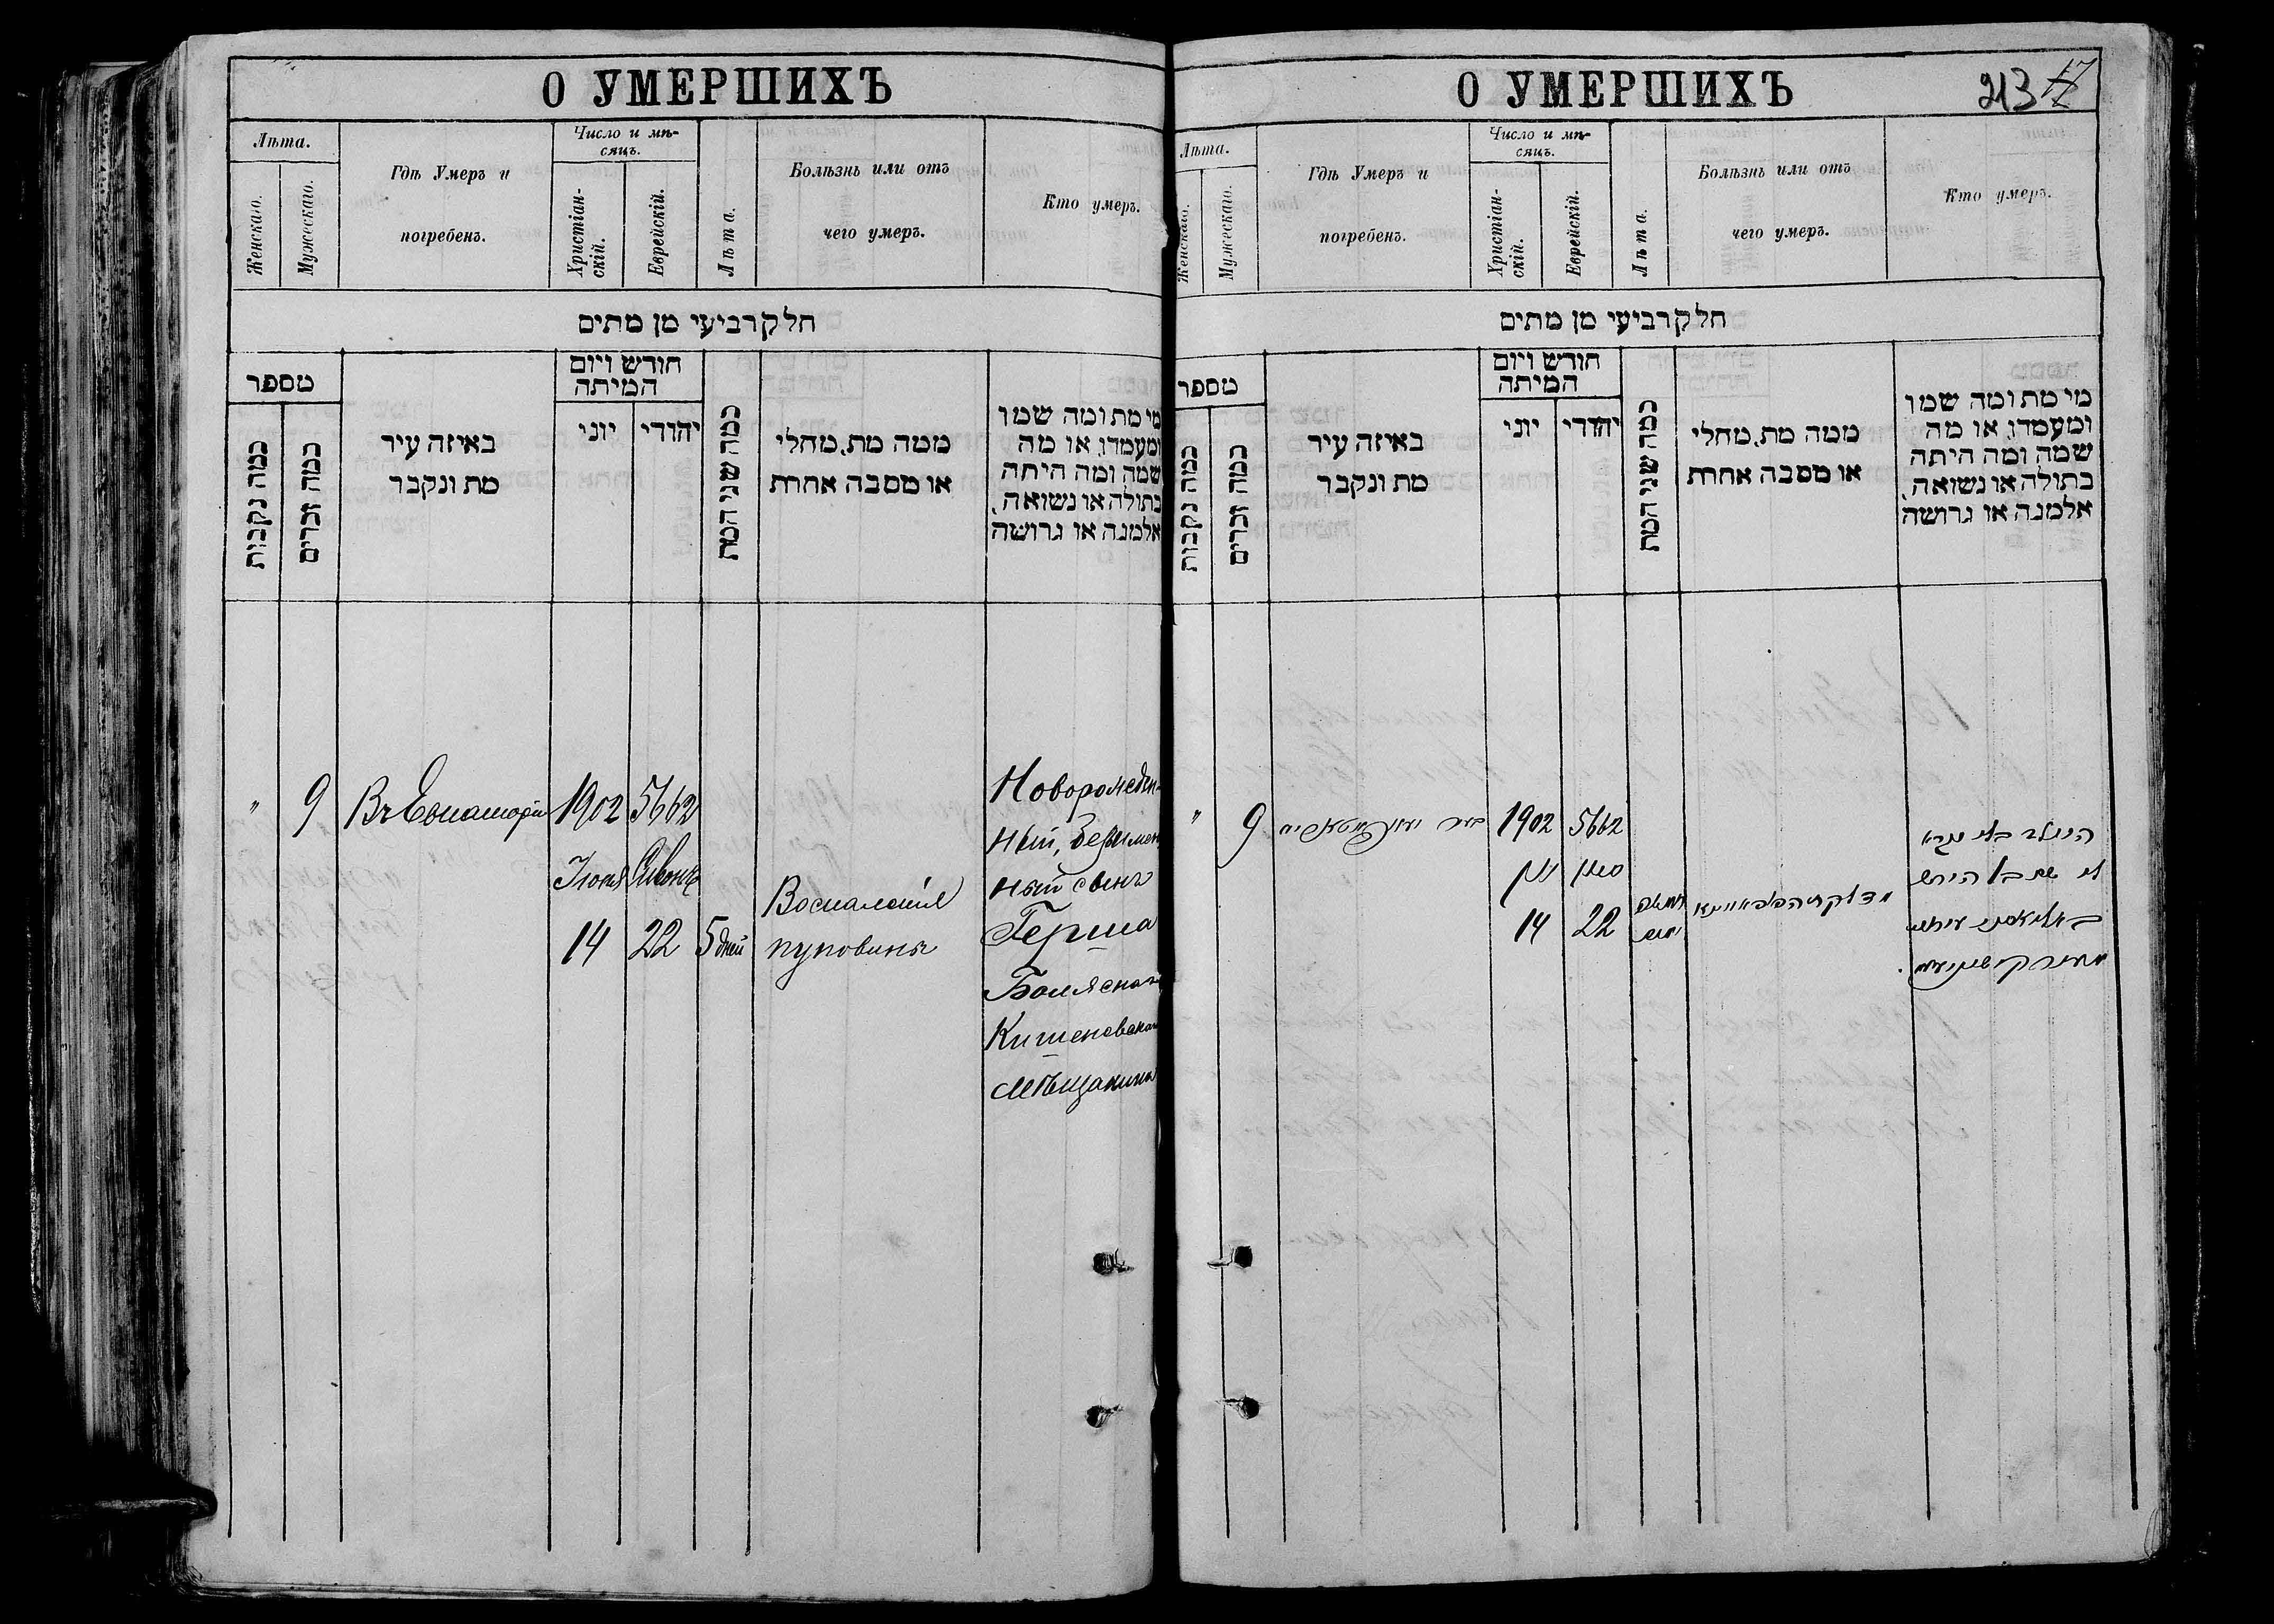 О УМЕРШИХЪ
Лѣта.
Женскаго.
Мужескаго.
Гдѣ Умеръ и
погребенъ.
Число и мѣ-
сяцъ.
Христіан-
скій.
Еврейскій.
Лѣта.
Болѣзнь или отъ
чего умеръ.
Кто умеръ.
חלק רביעי מן מתים
מספר
כמה נקבות
כמה זכרים
באיזה עיר
מת ונקבר
חודש ויום
המיתה
יוני
יהודי
כמה שני המת
ממה מת, מחלי
או מסבה אחרת
מי מת ומה שמו
ומעמדו, או מה
שמה ומה היתה
בתולה או נשואה,
אלמנה או גרושה
"
9
Въ Евпаторіи
1902
Іюня
14
5662
Сивонъ
22
5 дней
Воспаленія
пуповины
Новорожден-
ный, безымен
ный сынъ
Герша
Кишеневскаго
мѣщанина
О УМЕРШИХЪ
213 17
Лѣта.
Женскаго.
Мужескаго.
Гдѣ Умеръ и
погребенъ.
Число и мѣ-
сяцъ.
Христіан-
скій.
Еврейскій.
Лѣта.
Болѣзнь или отъ
чего умеръ.
Кто умеръ.
חלק רביעי מן מתים
מספר
כמה נקבות
כמה זכרים
באיזה עיר
מת ונקבר
חודש ויום
המיתה
יוני
יהודי
כמה שני המת
ממה מת, מחלי
או מסבה אחרת
מי מת ומה שמו
ומעמדו, או מה
שמה ומה היתה
בתולה או נשואה,
אלמנה או גרושה
"
9
בעיר
1902
יוני
14
5662
סיון
22
הנולד